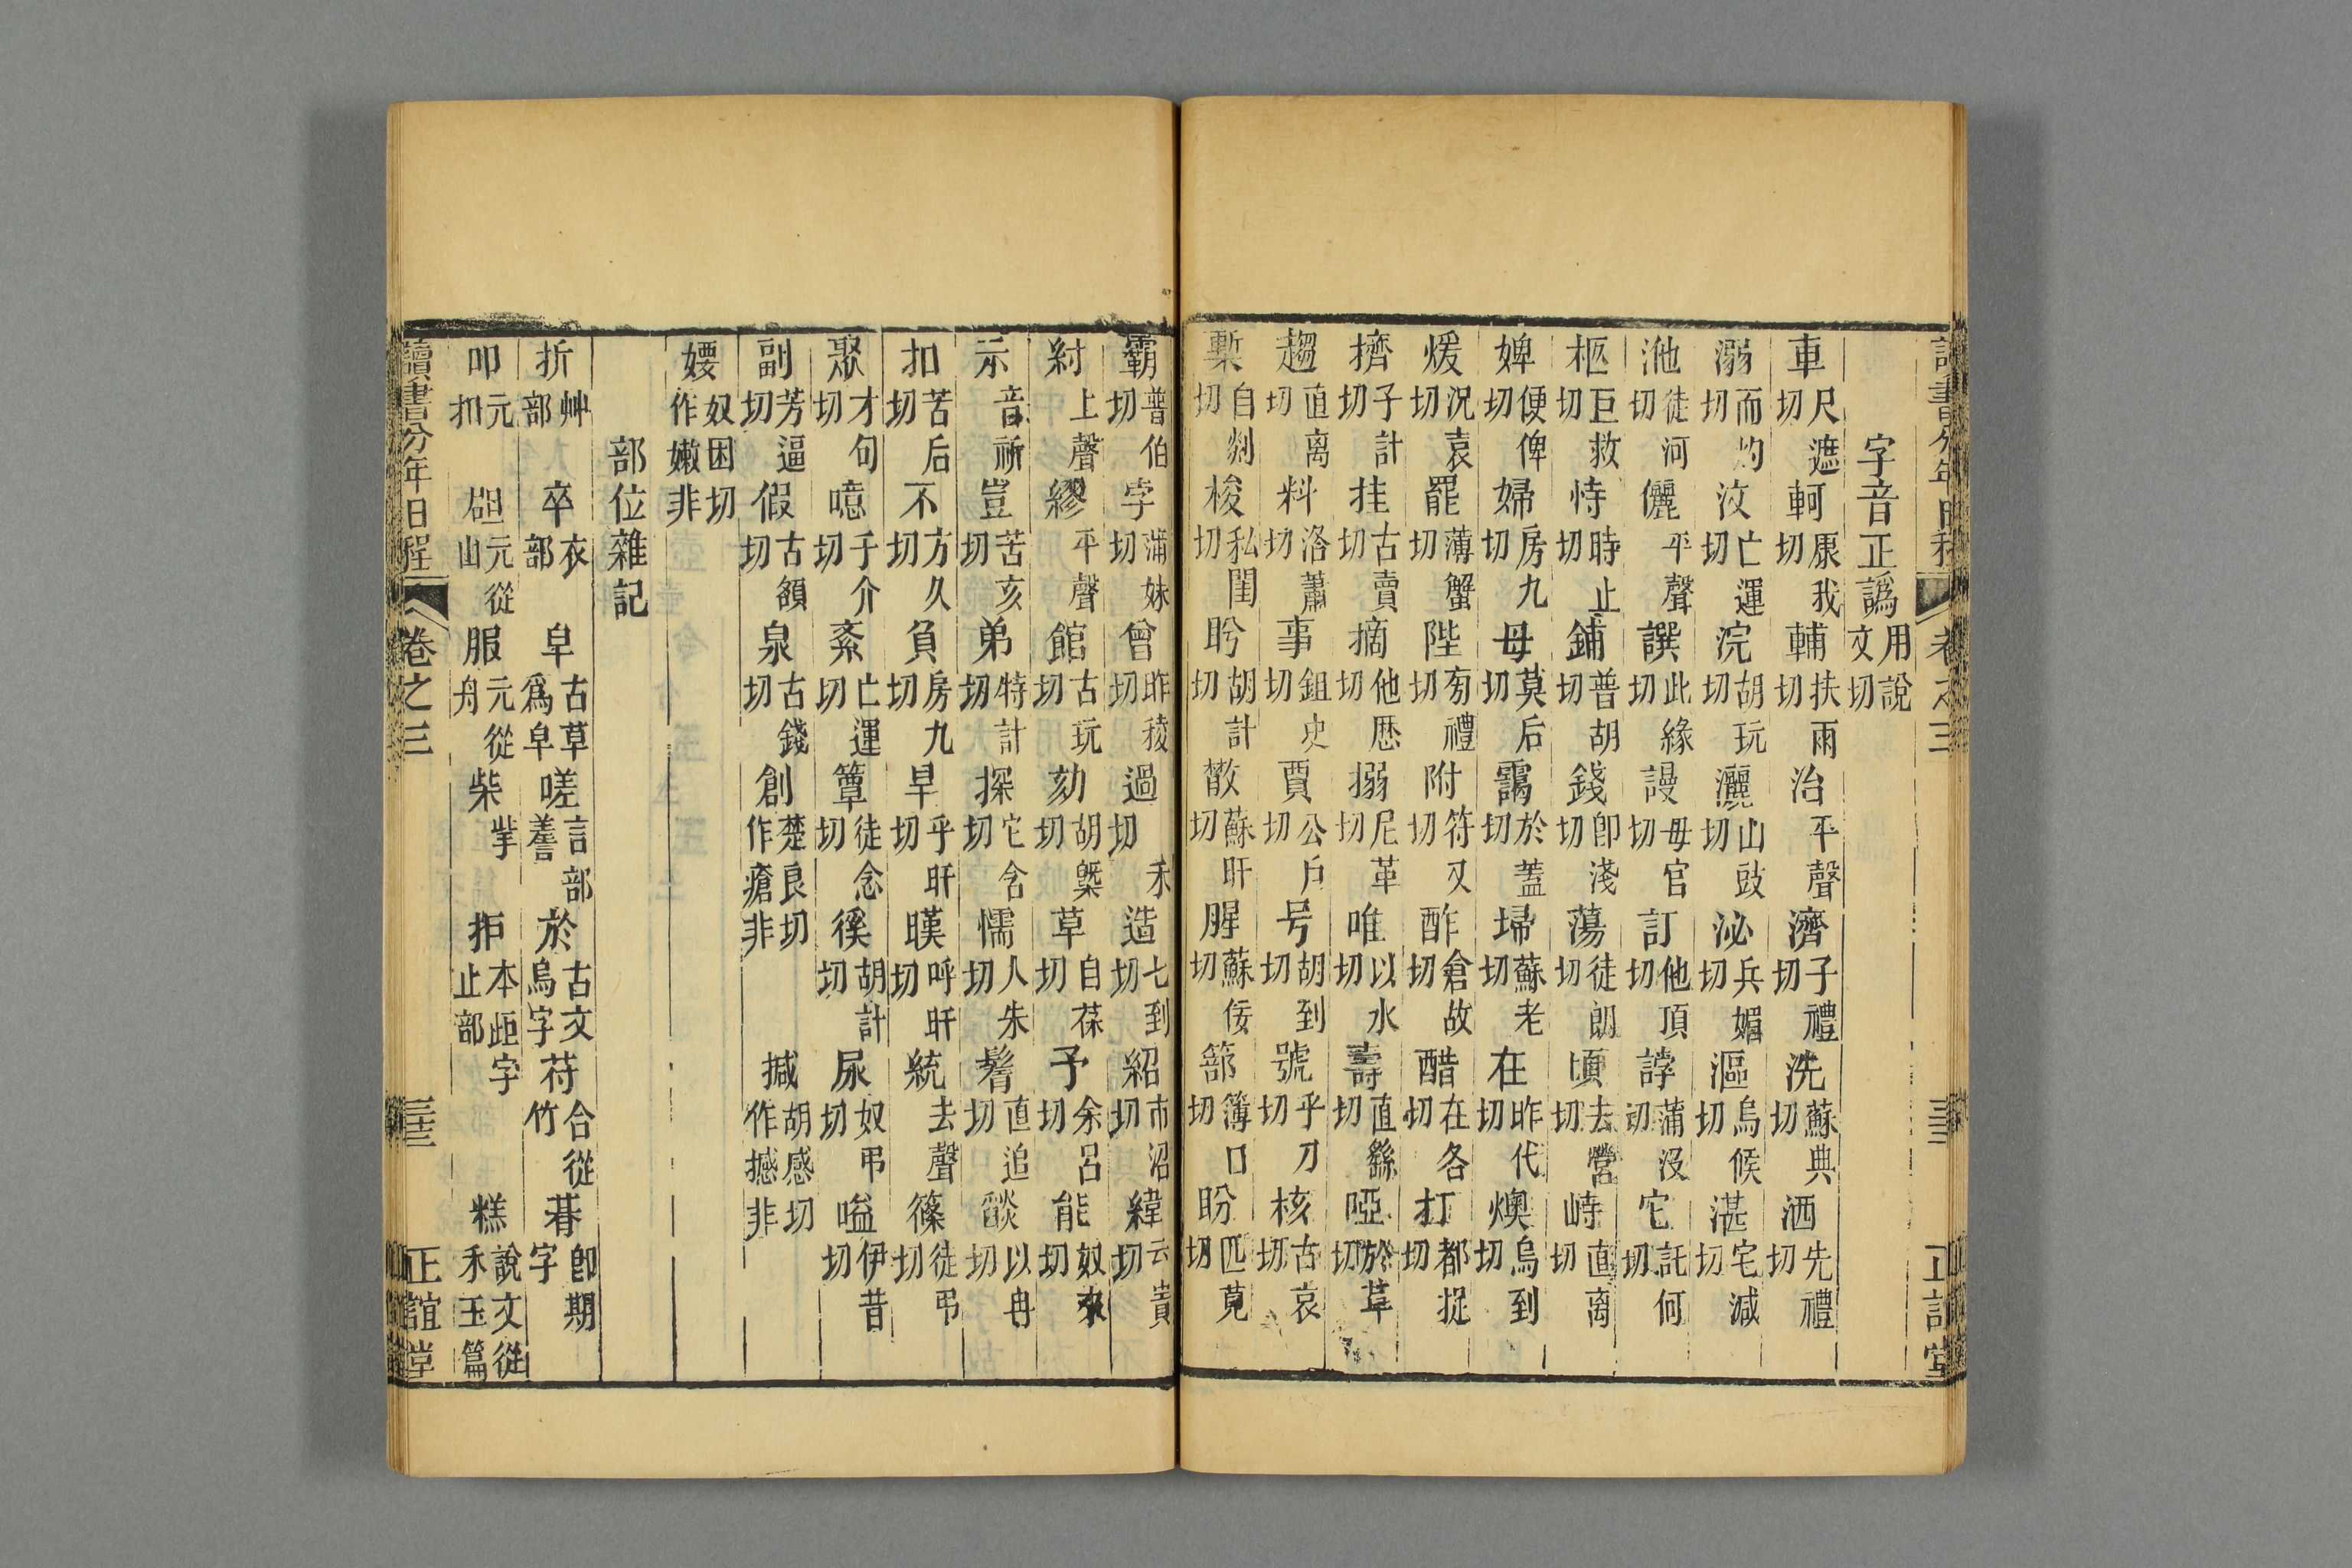 字音正譌用說文切
車尺遮切軻康我切輔扶雨切治平聲濟子禮切洗蘇典切洒先禮切
溺而灼切汶亡運切浣胡玩切灑山豉切泌兵媚切漚烏候切湛宅減切
沲徒河切儷平聲譔此緣切謾毋官切訂他頂切誖蒲沒切它託何切
柩巨救切恃時止切鋪普胡切錢卽淺切蕩徒朗切頃去營切峙直离切
婢便俾切婦房九切母莫后切靄於蓋切埽蘇老切在昨代切燠烏到切
煖況袁切罷薄蟹切陛旁禮切附符又切酢倉故切醋在各切打都挺切
擠子計切挂古賣切摘他歷切搦尼革切唯以水切壽直繇切啞於革切
趨直离切料洛蕭切事鉏史切賈公戶切号胡到切號乎刀切核古哀切
槧自剡切梭私閏切盻胡計切散蘇旰切腥蘇佞切篰簿口切盼匹莧切
霸普伯切孛蒲妹切曾昨稜切過禾切造七到切紹市沼切緯云貴切
紂上聲繆平聲館古玩切劾胡槩切草自葆切予余呂切能奴來切
示音祈豈苦亥切弟特計切探它含切懦人朱切鬐直追切燄以冉切
扣苦后切不方久切負房九切旱乎旰切暵呼旰切統去聲篠徒弔切
聚才句切噫于介切紊亡運切簟徒念切徯胡計切尿奴弔切嗌伊昔切
副芳逼切假古頟切泉古錢切創楚良切作瘡非撼胡感切作撼非
媆奴困切作嫩非
部位雜記
折艸部卒衣部皁古草爲皁嗟言部䜺於古文烏字苻合從竹朞卽期字
叩元扣岊元從山服元從舟柴㧘拒本歫字止部糕說文從禾玉篇
讀書分年日程 卷之三 三三 正誼堂